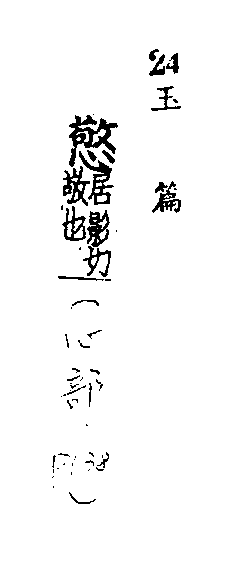 24 玉篇
憼
居影切
敬也
(心部.P138)